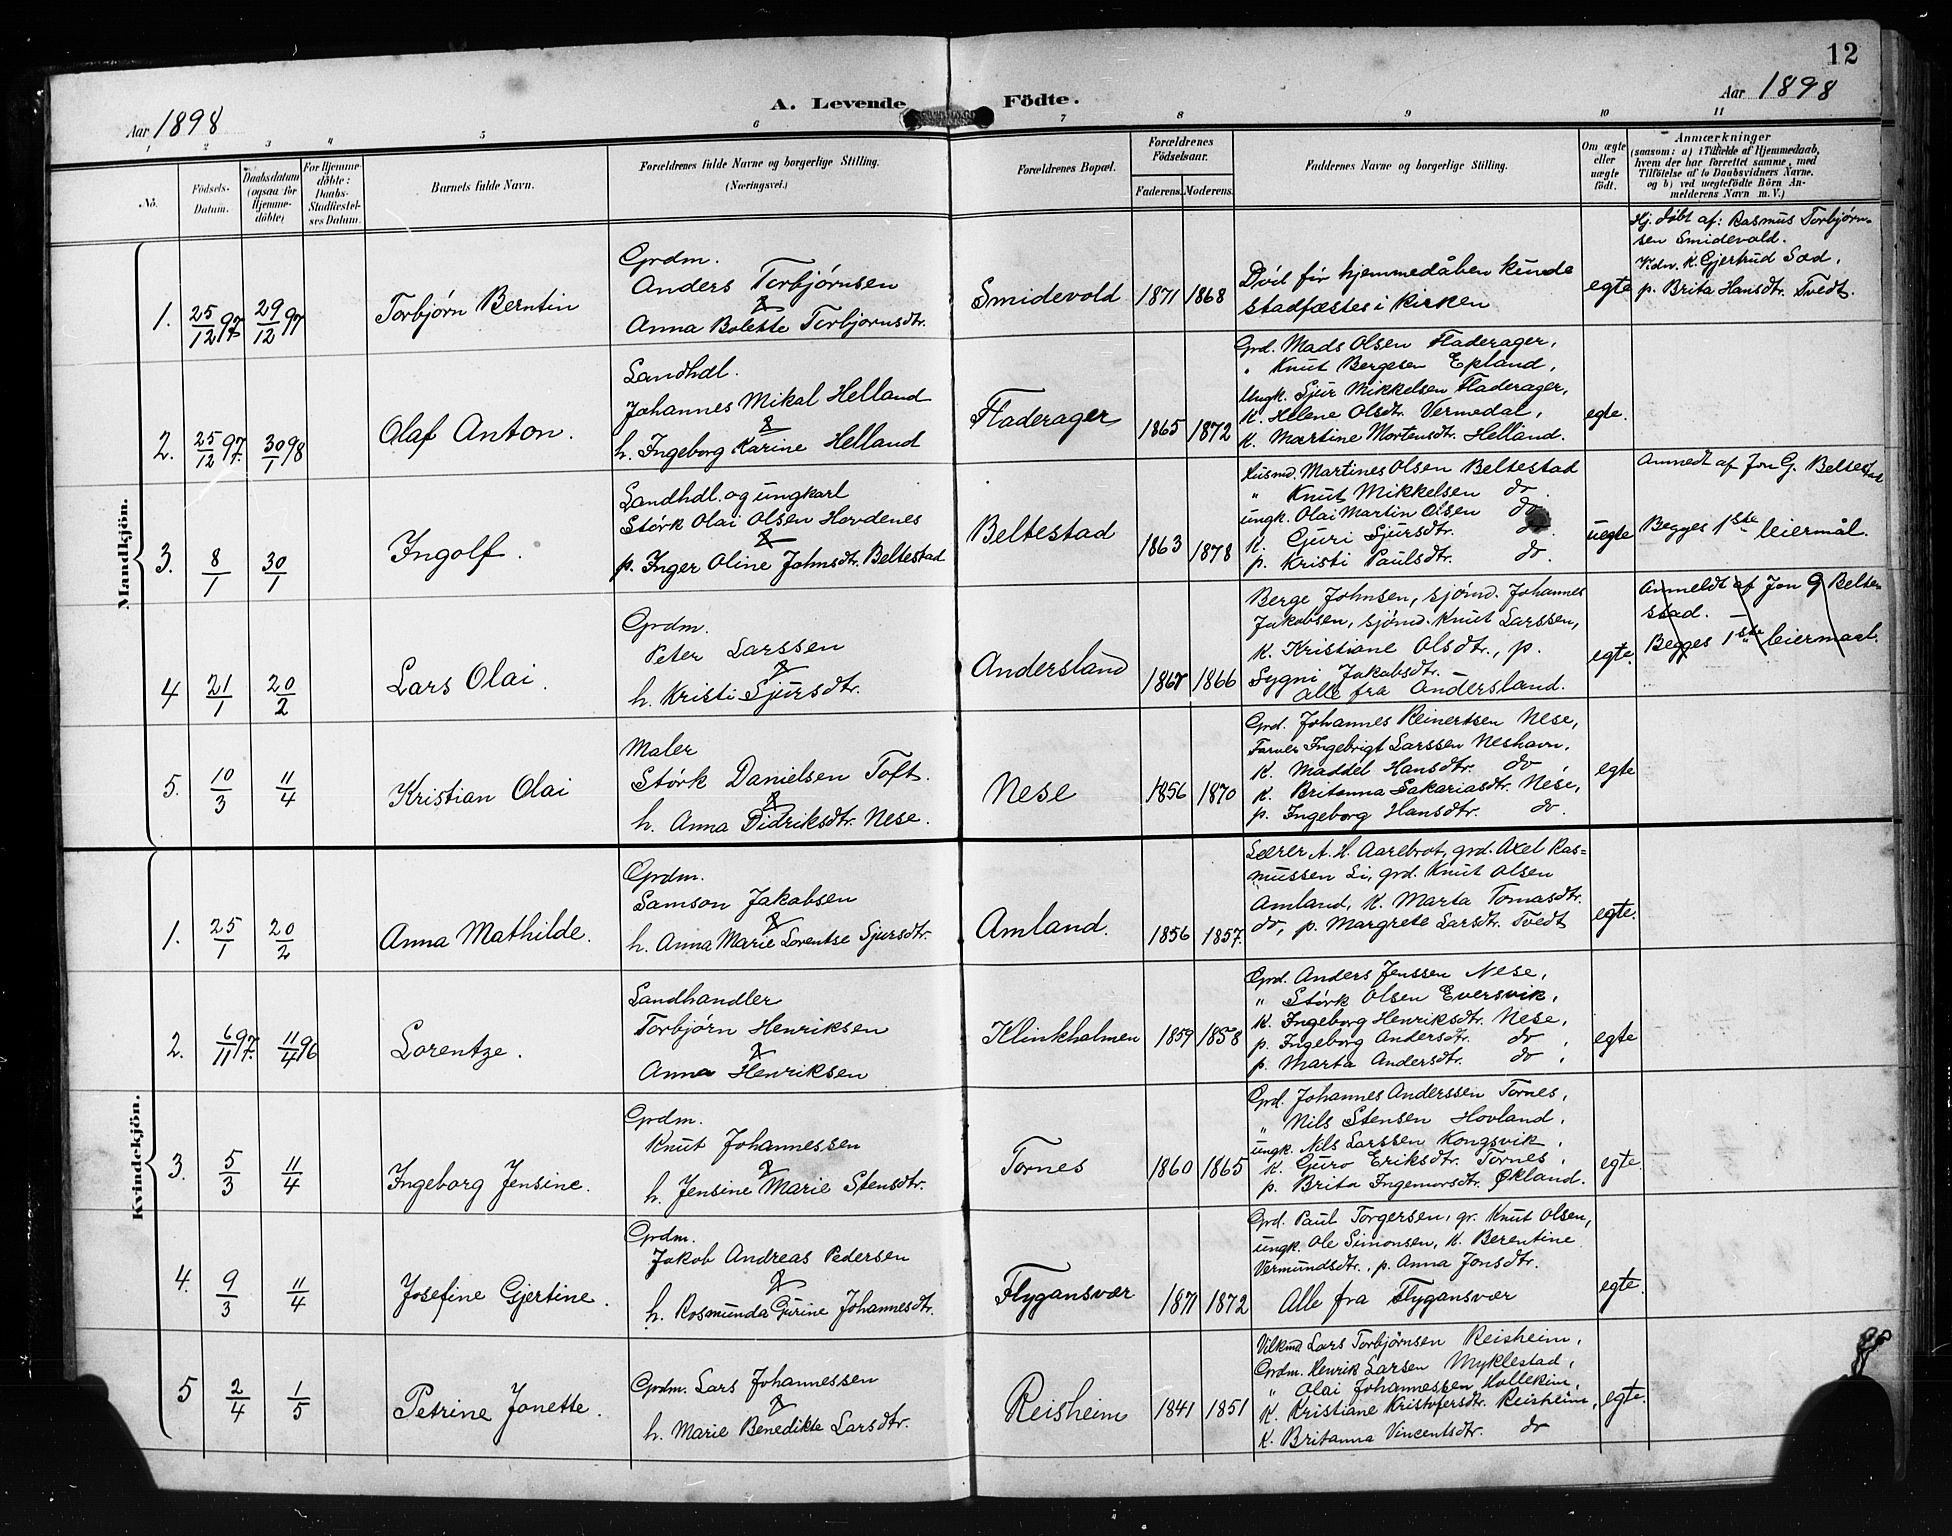 12
Aar 1898
A. Levende Födte.
Aar 1898
1 2 3 4 5 6 7 8 9 10 11
No.
Födsels-Datum.
Daabsdatum (ogsaa for Hjemmedöbte)
For Hjemmedöbte: Daabs-Stadfæstelses Datum.
Barnets fulde Navn.
Forældrenes fulde Navne og borgerlige Stilling.
(Næringsvei.)
Forældrenes Bopæl.
Forældrenes Födselsaar.
Faderens. Moderens.
Faddernes Navne og borgerlige Stilling.
Om ægte eller uægte födt.
Anmærkninger
(saasom: a) i Tilfælde af Hjemmedaab,
hvem der har forrettet samme, med
Tilföielse af to Daabsvidners Navne.
og b) ved uægtefödte Börn An-
melderens Navn m. V.)
Mandkjön.
1. 25/12 97. 29/12 97
Torbjørn Berntin
Grdm.
Anders Torbjørnsen
&
Anna Bolette Torbjørnsdtr.
Smidevold
1871 1868
Dvil før hjemmedåben kunde
stadfæstes i kirken
egte
Hj. døbt af: Rasmus Torbjørn-
sen Smidevold.
Vidn. K. Gjertrud Sæd,
p. Brita Hansdtr. Tvedt.
2. 25/12 97. 30/1 98
Olaf Anton.
Landhdl.
Johannes Mikal Helland
&
h. Ingeborg Karine Helland
Fladerager
1865 1872
Grd. Mads Olsen Fladerager,
" Knut Bergesen Epland,
Ungk. Sjur Mikkelsen Fladerager,
K. Helene Olsdtr. Vermedal,
K. Martine Mortensdtr. Helland.
egte.
3. 8/1 30/1
Ingolf.
Landhdl. og ungkarl
Størk Olai Olsen Hovdenes
&
p. Inger Oline Johnsdtr. Beltestad
Beltestad
1863 1878
Husmd. Martines Olsen Beltestad
" Knut Mikkelsen do.
ungk. Olai Martin Olsen do
K. Guri Sjursdtr. do.
p. Kristi Paulsdtr. do
uegte
Anmedt af Jon G. Beltestad
Begges 1ste leiermål.
4 21/1 20/2
Lars Olai.
Grdm.
Peter Larssen
&
h. Kristi Sjursdtr.
Andersland
1867 1866
Berge Johnsen, sjømd. Johannes
Jakobsen, sjømd. Knut Larssen,
K. Kristiane Olsdtr., p.
Sygni Jakobsdtr.
alle fra Andersland.
egte.
Anmeldt af Jon G Belte-
stad.
Begges 1ste leiermaal.
5. 10/3 11/4
Kristian Olai
Maler
Størk Danielsen Toft.
&
h. Anna Didriksdtr. Nese.
Nese
1856 1870
Grd. Johannes Reinertsen Nese,
Farver Ingebrigt Larssen Neshavn,
K. Maddel Hansdtr. do,
K. Britanna Sakariasdtr. Nese,
p. Ingeborg Hansdtr. do.
egte
Kvindekjön.
1. 25/1 20/2
Anna Mathilde.
Grdm.
Samson Jakobsen
&
h. Anna Marie Lorentse Sjursdtr.
Amland.
1856 1857.
Lærer A. H. Aarebrot, grd. Axel Ras=
mussen Li, grd. Knut Olsen
Amland, K. Marta Tomasdtr.
do, p. Margrete Larsdtr. Tvedt
egte.
2. 6/11 97. 11/4 96
Lorentze.
Landhandler
Torbjørn Henriksen
&
Anna Henriksen
Klinkholmen
1859 1858
Grd. Anders Jenssen Nese,
" Størk Olsen Eversvik,
K. Ingeborg Henriksdtr. Nese,
p. Ingeborg Andersdtr. do,
p. Marta Andersdtr. do,
egte
3. 5/3 11/4
Ingeborg Jensine.
Grdm.
Knut Johannessen
&
h. Jensine Marie Stensdtr.
Tornes
1860 1865
Grd. Johannes Anderssen Tornes,
" Nils Stensen Hovland,
ungk. Nils Larssen Kongsvik,
K. Guro Eriksdtr. Tornes,
p. Brita Ingemorsdtr. Økland.
egte.
4. 9/3 11/4
Josefine Gjertine.
Grdm.
Jakob Andreas Pedersen
&
h. Rosmunda Gurine Johannesdtr.
Flygansvær
1871 1872
Grd. Paul Torgersen, gr. Knut Olsen,
ungk. Ole Simonsen, K. Berentine
Vermundsdtr., p. Anna Jonsdtr.
Alle fra Flygansvær
egte.
5 2/4 1/5
Petrine Jonette.
Grdm. Lars Johannessen
&
h. Marie Benedikte Larsdtr.
Reisheim
1841 1851
Vilkmd Lars Torbjørnsen Reisheim,
Grdm. Henrik Larsen Myklestad,
" Olai Johannessen Hollekim,
K. Kristiane Kristofersdtr. Reisheim,
K. Britanna Vincentsdtr. do
egte.